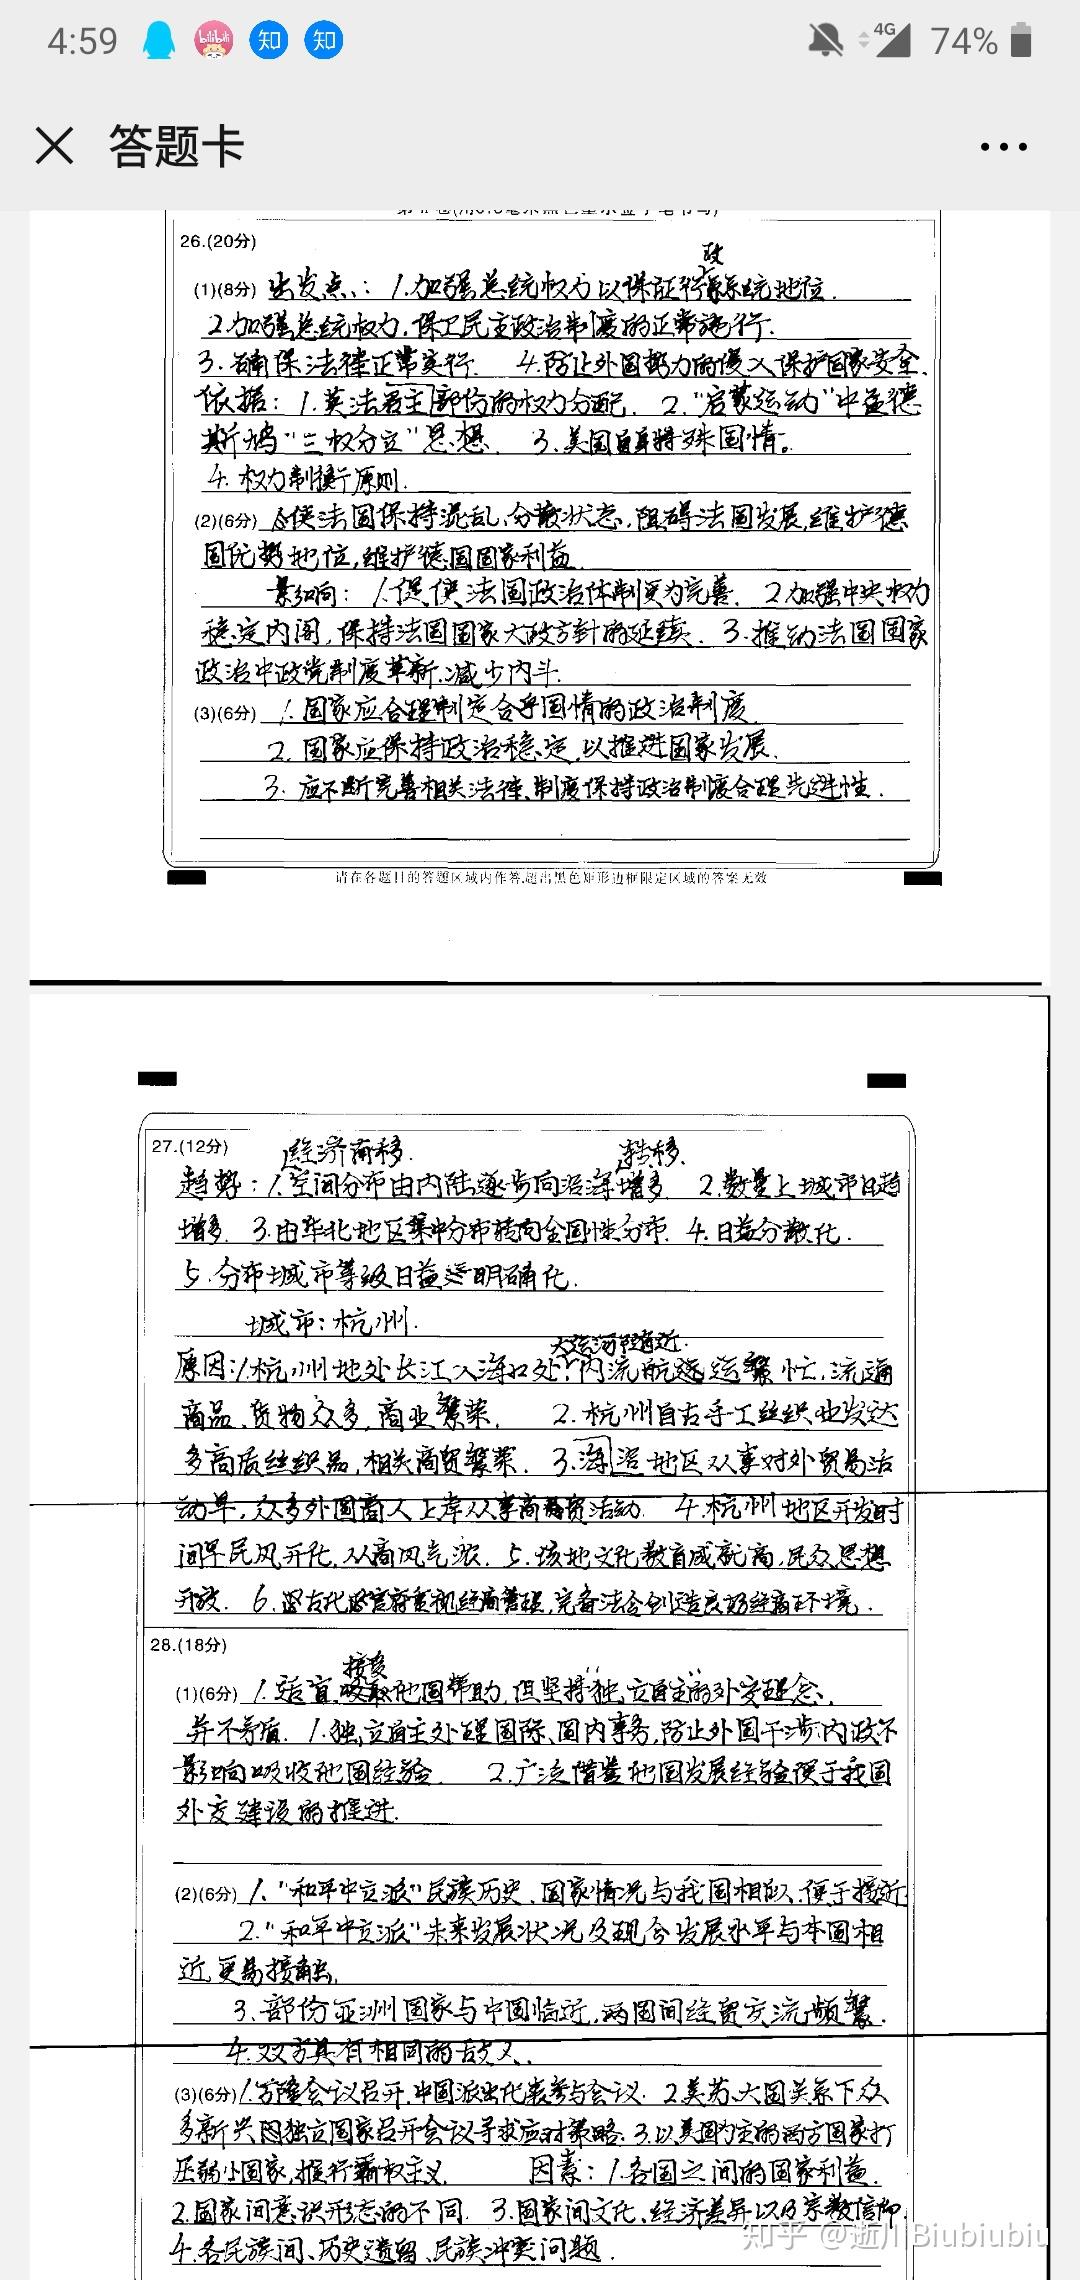 4:59
bilibili
知
知
4G
74%
答题卡
26.(20分)
政
(1)(8分) 出发点：1.加强总统权力以保证行系统地位.
2.加强总统权力,保卫民主政治制度的正常施行.
3.确保法律正常实行. 4.防止外国势力的侵入保护国家安全.
依据：1.英法君主部份的权力分配. 2."启蒙运动"中孟德
斯鸠"三权分立"思想. 3.美国自身特殊国情。
4.权力制衡原则.
(2)(6分) 使法国保持混乱、分散状态,阻碍法国发展,维护德
国优势地位,维护德国国家利益.
影响：1.促使法国政治体制更为完善. 2.加强中央权力
稳定内阁,保持法国国家大政方针的延续. 3.推动法国国家
政治中政党制度革新,减少内斗.
(3)(6分) 1.国家应合理制定合乎国情的政治制度.
2.国家应保持政治稳定,以推进国家发展.
3.应不断完善相关法律、制度保持政治制度合理先进性.
请在各题目的答题区域内作答,超出黑色矩形边框限定区域的答案无效
27.(12分)
经济南移. 转移.
趋势：1.空间分布由内陆逐步向沿海增多 2.数量上城市日趋
增多. 3.由华北地区集中分布转向全国性分布. 4.日益分散化.
5.分布城市等级日益明确化.
城市：杭州.
大运河附近.
原因：1.杭州地处长江入海口处,内流航运繁忙,流通
商品、货物众多,商业繁荣. 2.杭州自古手工丝织业发达
多高质丝织品,相关商贸繁荣. 3.海沿地区从事对外贸易活
动早,众多外国商人上岸从事商贸活动 4.杭州地区开发时
间早民风开化,从商风气浓. 5.该地文化教育成就高,民众思想
开放. 6.古代官府重视经商管理,完备法令创造良好经商环境.
28.(18分)
接受
(1)(6分) 1.适宜他国帮助,但坚持独立自主的外交理念,
并不矛盾. 1.独立自主处理国际、国内事务,防止外国干涉内政不
影响吸收他国经验. 2.广泛借鉴他国发展经验便于我国
外交建设的推进.
(2)(6分) 1."和平中立派"民族历史、国家情况与我国相似、便于接近
2."和平中立派"未来发展状况及现今发展水平与本国相
近,更易接触.
3.部份亚洲国家与中国临近,两国间经贸交流频繁.
4.双方具有相同的敌人.
(3)(6分) 1.万隆会议召开,中国派出代表参与会议. 2.美苏大国关系下众
多新兴独立国家召开会议寻求应对策略. 3.以美国为主的西方国家打
压弱小国家,推行霸权主义. 因素：1.各国之间的国家利益.
2.国家间意识形态的不同. 3.国家间文化、经济差异以及宗教信仰.
4.各民族间、历史遗留、民族冲突问题.
知乎 @逝川Biubiubiu